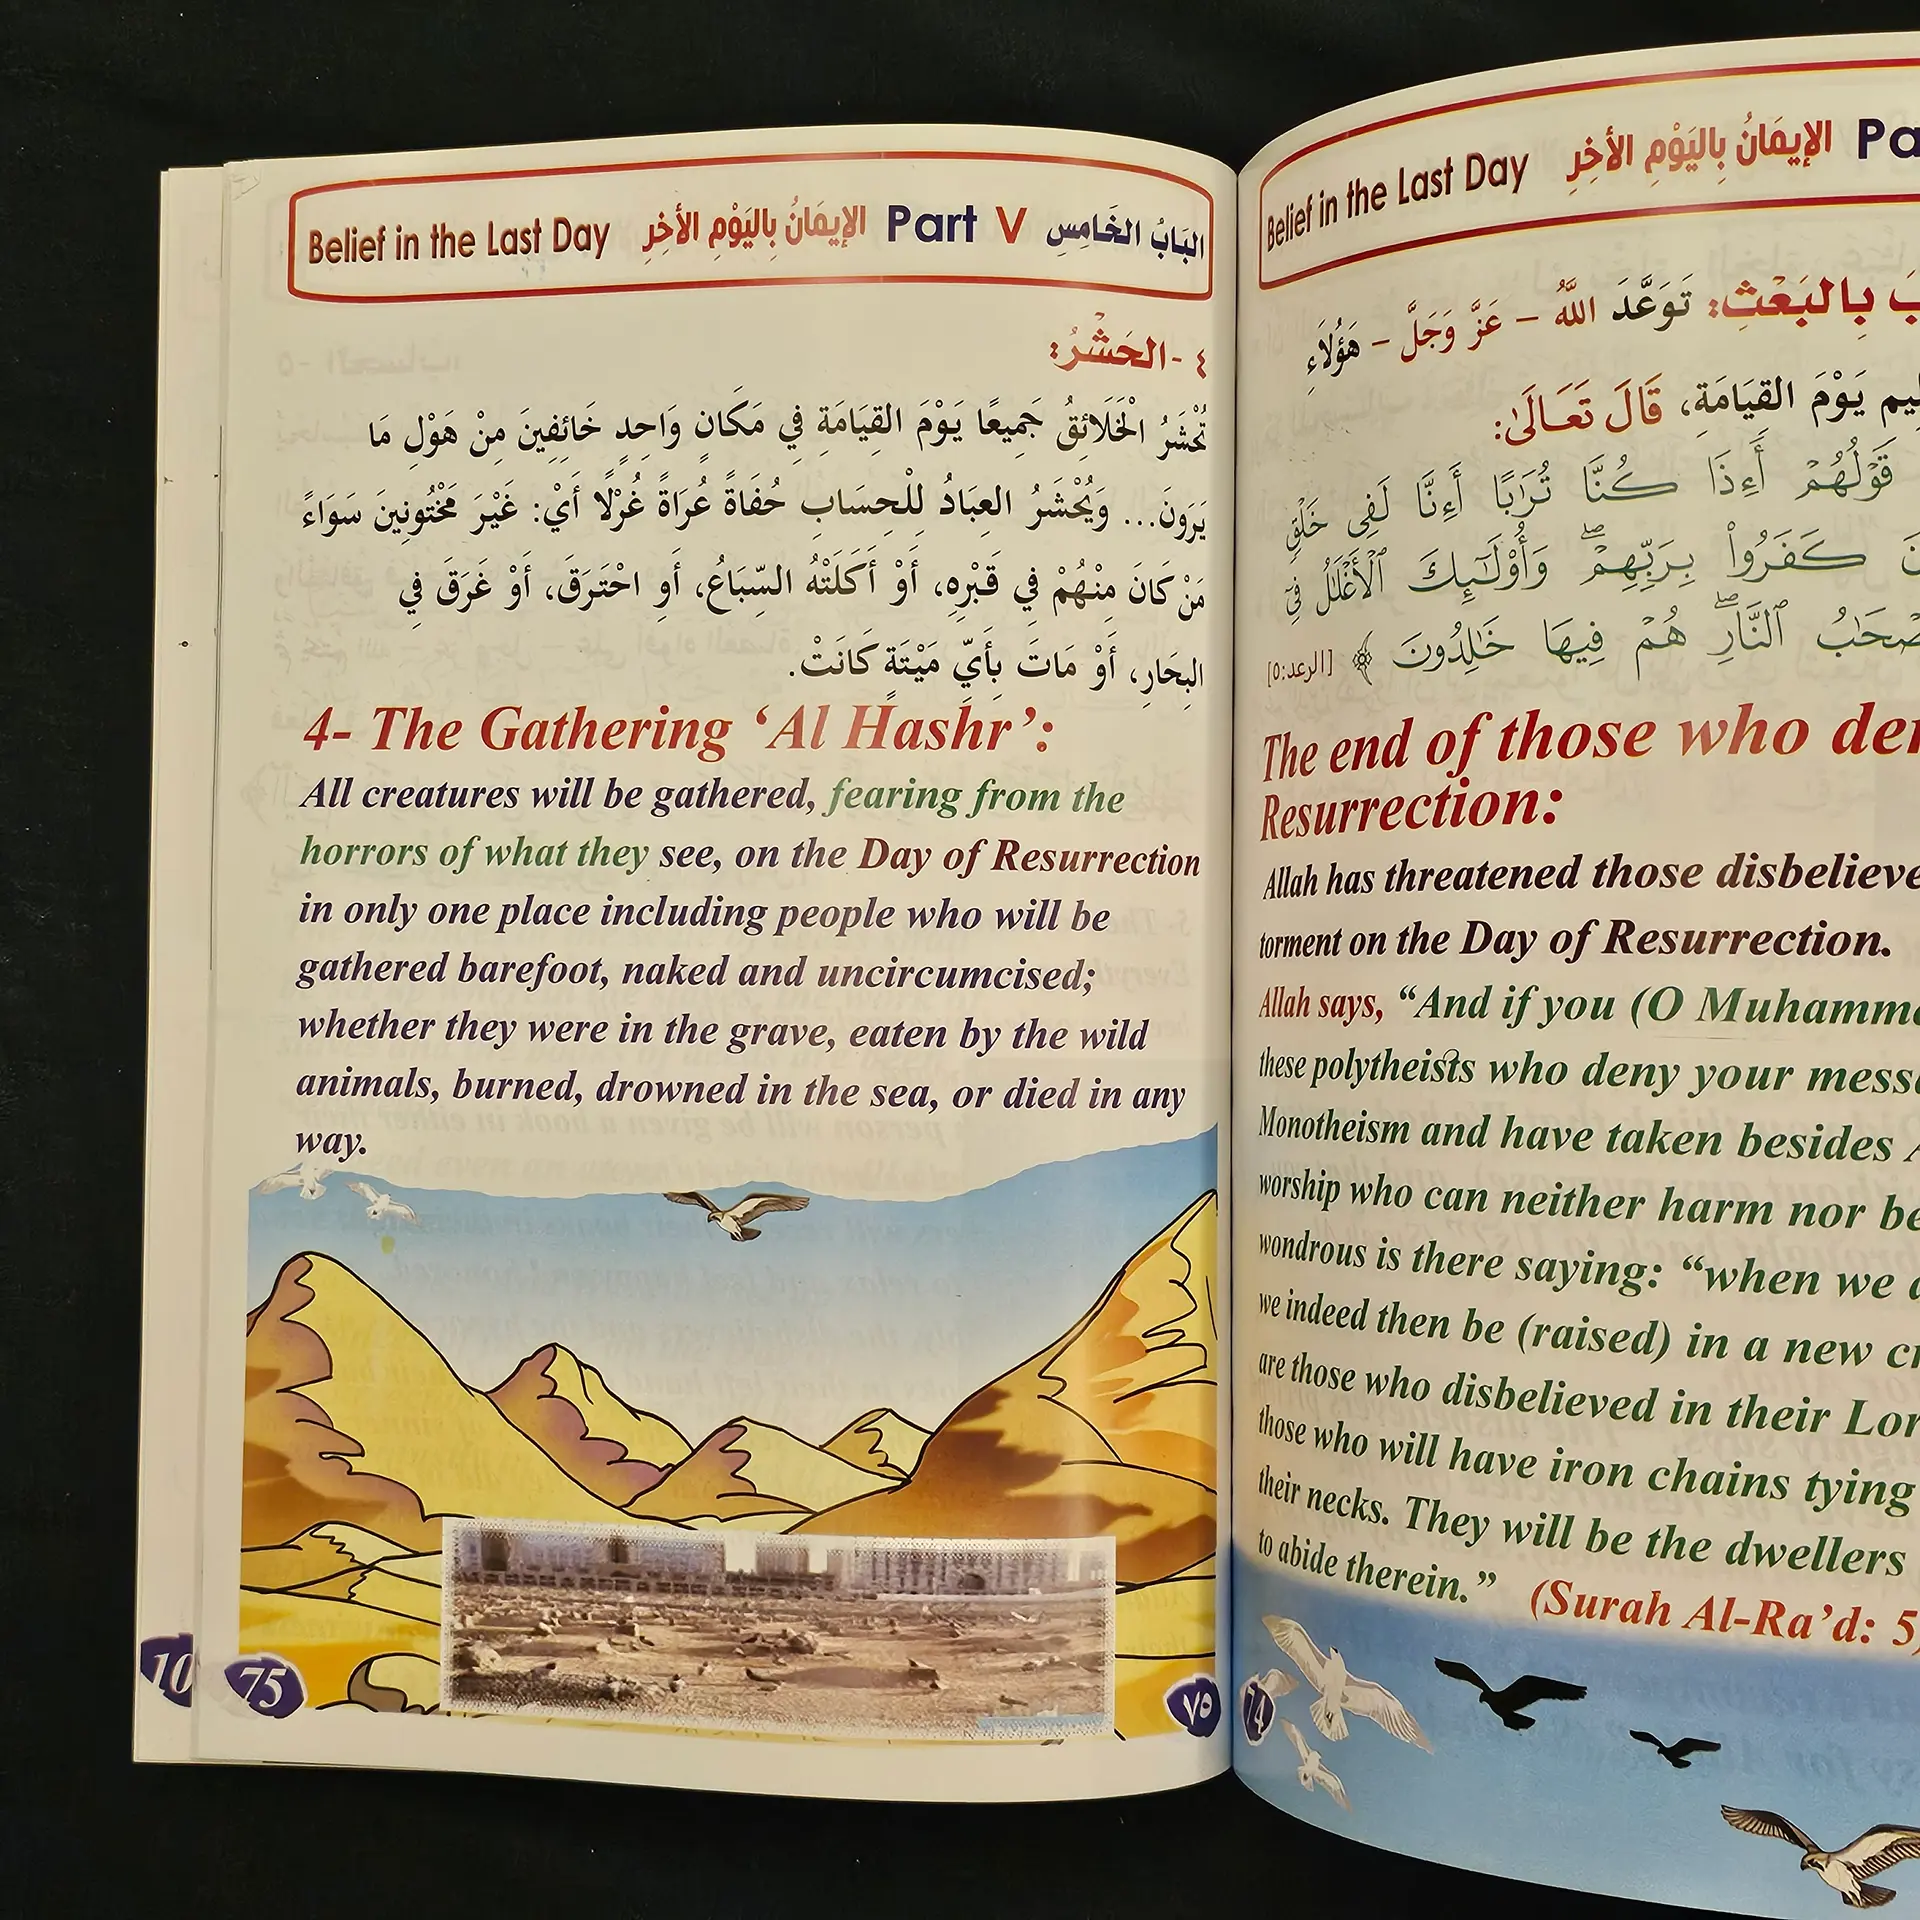 Belief in the Last Day الإيمَانُ بِاليَوْمِ الأخِرِ Part V البَابُ الخَامِس
٤ -الحَشْرُ:
تُحْشَرُ الْخَلَائِقُ جَمِيعًا يَوْمَ القِيَامَةِ فِي مَكَانٍ وَاحِدٍ خَائِفِينَ مِنْ هَوْلِ مَا
يَرَونَ... وَيُحْشَرُ العِبَادُ لِلْحِسَابِ حُفَاةً عُرَاةً غُرْلًا أَيْ: غَيْرَ مَخْتُونِينَ سَوَاءً
مَنْ كَانَ مِنْهُمْ فِي قَبْرِهِ، أَوْ أَكَلَتْهُ السِّبَاعُ، أَو احْتَرَقَ، أَوْ غَرَقَ فِي
البِحَارِ، أَوْ مَاتَ بِأَيِّ مَيْتَةٍ كَانَتْ.
4- The Gathering ‘Al Hashr’:
All creatures will be gathered, fearing from the
horrors of what they see, on the Day of Resurrection
in only one place including people who will be
gathered barefoot, naked and uncircumcised;
whether they were in the grave, eaten by the wild
animals, burned, drowned in the sea, or died in any
way.
10
75
٧٥
Belief in the Last Day الإيمَانُ بِاليَوْمِ الأخِرِ
بِالبَعْثِ: تَوَعَّدَ اللَّهُ – عَزَّ وَجَلَّ – هَؤُلَاءِ
يَوْمَ القِيَامَةِ، قَالَ تَعَالَى:
قَوْلُهُمْ أَءِذَا كُنَّا تُرَٰبًا أَءِنَّا لَفِى خَلْقٍ
كَفَرُوا۟ بِرَبِّهِمْ ۖ وَأُو۟لَٰٓئِكَ ٱلْأَغْلَٰلُ فِىٓ
ٱلنَّارِ ۖ هُمْ فِيهَا خَٰلِدُونَ ﴾ [الرعد:٥]
The end of those who
Resurrection:
Allah has threatened those
torment on the Day of Resurrection.
Allah says, “And if you (O
these polytheists who deny your
Monotheism and have taken besides
worship who can neither harm nor
wondrous is there saying: “when we
we indeed then be (raised) in a new
are those who disbelieved in their
those who will have iron chains tying
their necks. They will be the dwellers
to abide therein.” (Surah Al-Ra’d: 5
74